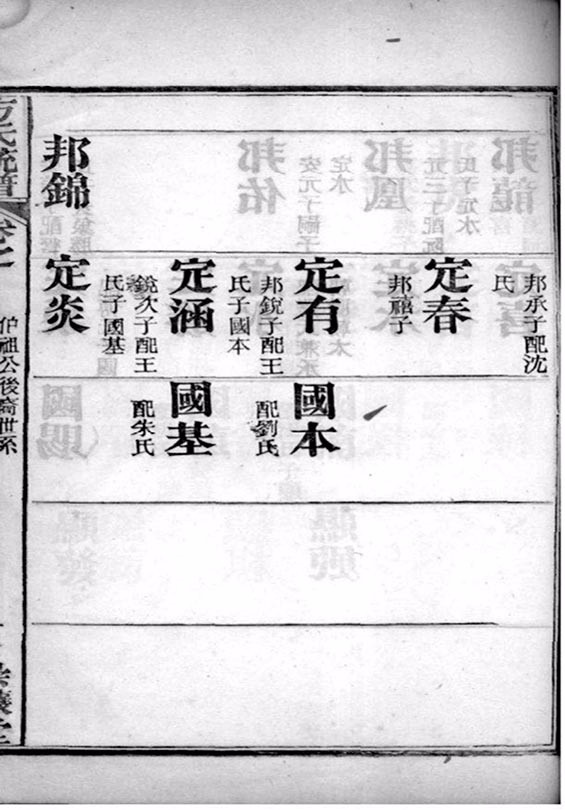 邦錦
邦承子配沈
氏
定春
邦禧子
定有
邦銳子配王
氏子國本
定涵
鏡次子配王
氏子國基
定炎
國本
配劉氏
國基
配朱氏
方氏統譜
卷之
祖公後裔世系